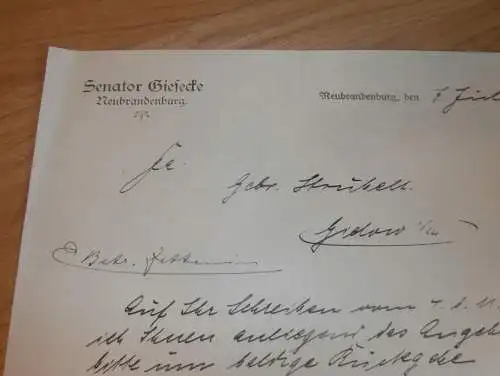 Senator Giesecke
Neubrandenburg.
Neubrandenburg, den 7 Juli
Fa.
Gebr. Struhell
Gielow i/M
Betr.
Auf Ihr Schreiben vom 4. d. M.
ich Ihnen anliegend das Angeb
bitte um baldige Rückgabe